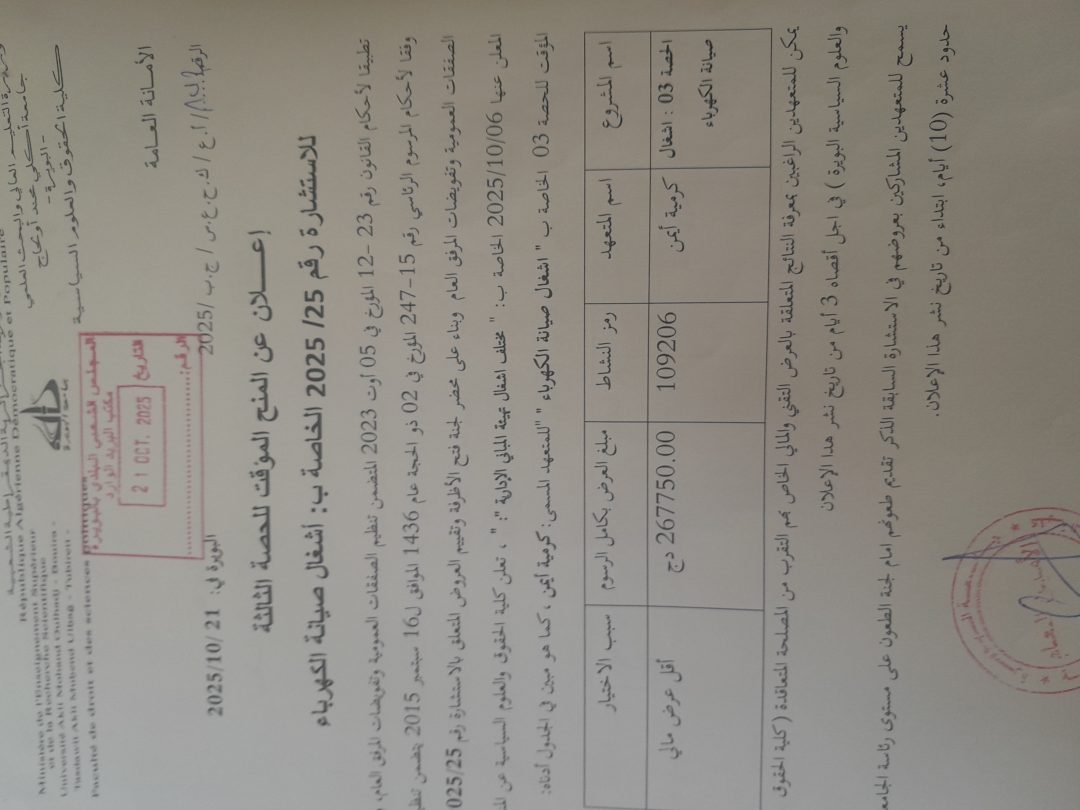 République Algérienne Démocratique et Populaire
Ministère de l'Enseignement Supérieur
et de la Recherche Scientifique
Université Akli Mohand Oulhadj - Bouira -
Tasdawit Akli Muḥend Ulḥaǧ - Tubirett -
Faculté de droit et des sciences politiques
وزارة التعليم العالي والبحث العلمي
جامعة أكلي محند أولحاج
- البويرة -
كلية الحقوق والعلوم السياسية
المجلس الشعبي البلدي بالبويرة
مكتب البريد الوارد
التاريخ
21 OCT. 2025
الرقم:
الأمانة العامة
الرقم / أ.ع / ك.ح.ع.س / ج.ب / 2025
البويرة في: 21 /2025/10
إعــــلان عن المنح المؤقت للحصة الثالثة
للاستشارة رقم 25/ 2025 الخاصة ب: أشغال صيانة الكهرباء
تطبيقا لأحكام القانون رقم 23 -12 المؤرخ في 05 أوت 2023 المتضمن تنظيم الصفقات العمومية وتفويضات المرفق العام،
وفقا لأحكام المرسوم الرئاسي رقم 15-247 المؤرخ في 02 ذو الحجة عام 1436 الموافق ل16 سبتمبر 2015 يتضمن
الصفقات العمومية وتفويضات المرفق العام وبناء على محضر لجنة فتح الأظرفة وتقييم العروض المتعلق بالاستشارة رقم
المعلن عنها 2025/10/06 الخاصة ب: " مختلف اشغال تهيئة المباني الإدارية ": " ، تعلن كلية الحقوق والعلوم السياسية عن
المؤقت للحصة 03 الخاصة ب " اشغال صيانة الكهرباء "للمتعهد المسمى: كرمية أيمن ، كما هو مبين في الجدول أدناه:
اسم المشروع اسم المتعهد رمز النشاط مبلغ العرض بكامل الرسوم سبب الاختيار
الحصة 03 : اشغال صيانة الكهرباء كرمية أيمن 109206 267750.00 دج أقل عرض مالي
يمكن للمتعهدين الراغبين بمعرفة النتائج المتعلقة بالعرض التقني والمالي الخاص بهم التقرب من المصلحة المتعاقدة ( كلية الحقوق
والعلوم السياسية البويرة ) في اجل أقصاه 3 أيام من تاريخ نشر هذا الإعلان
يسمح للمتعهدين المشاركين بعروضهم في الاستشارة السابقة الذكر تقديم طعونهم امام لجنة الطعون على مستوى رئاسة
حدود عشرة (10) أيام، ابتداء من تاريخ نشر هذا الإعلان.